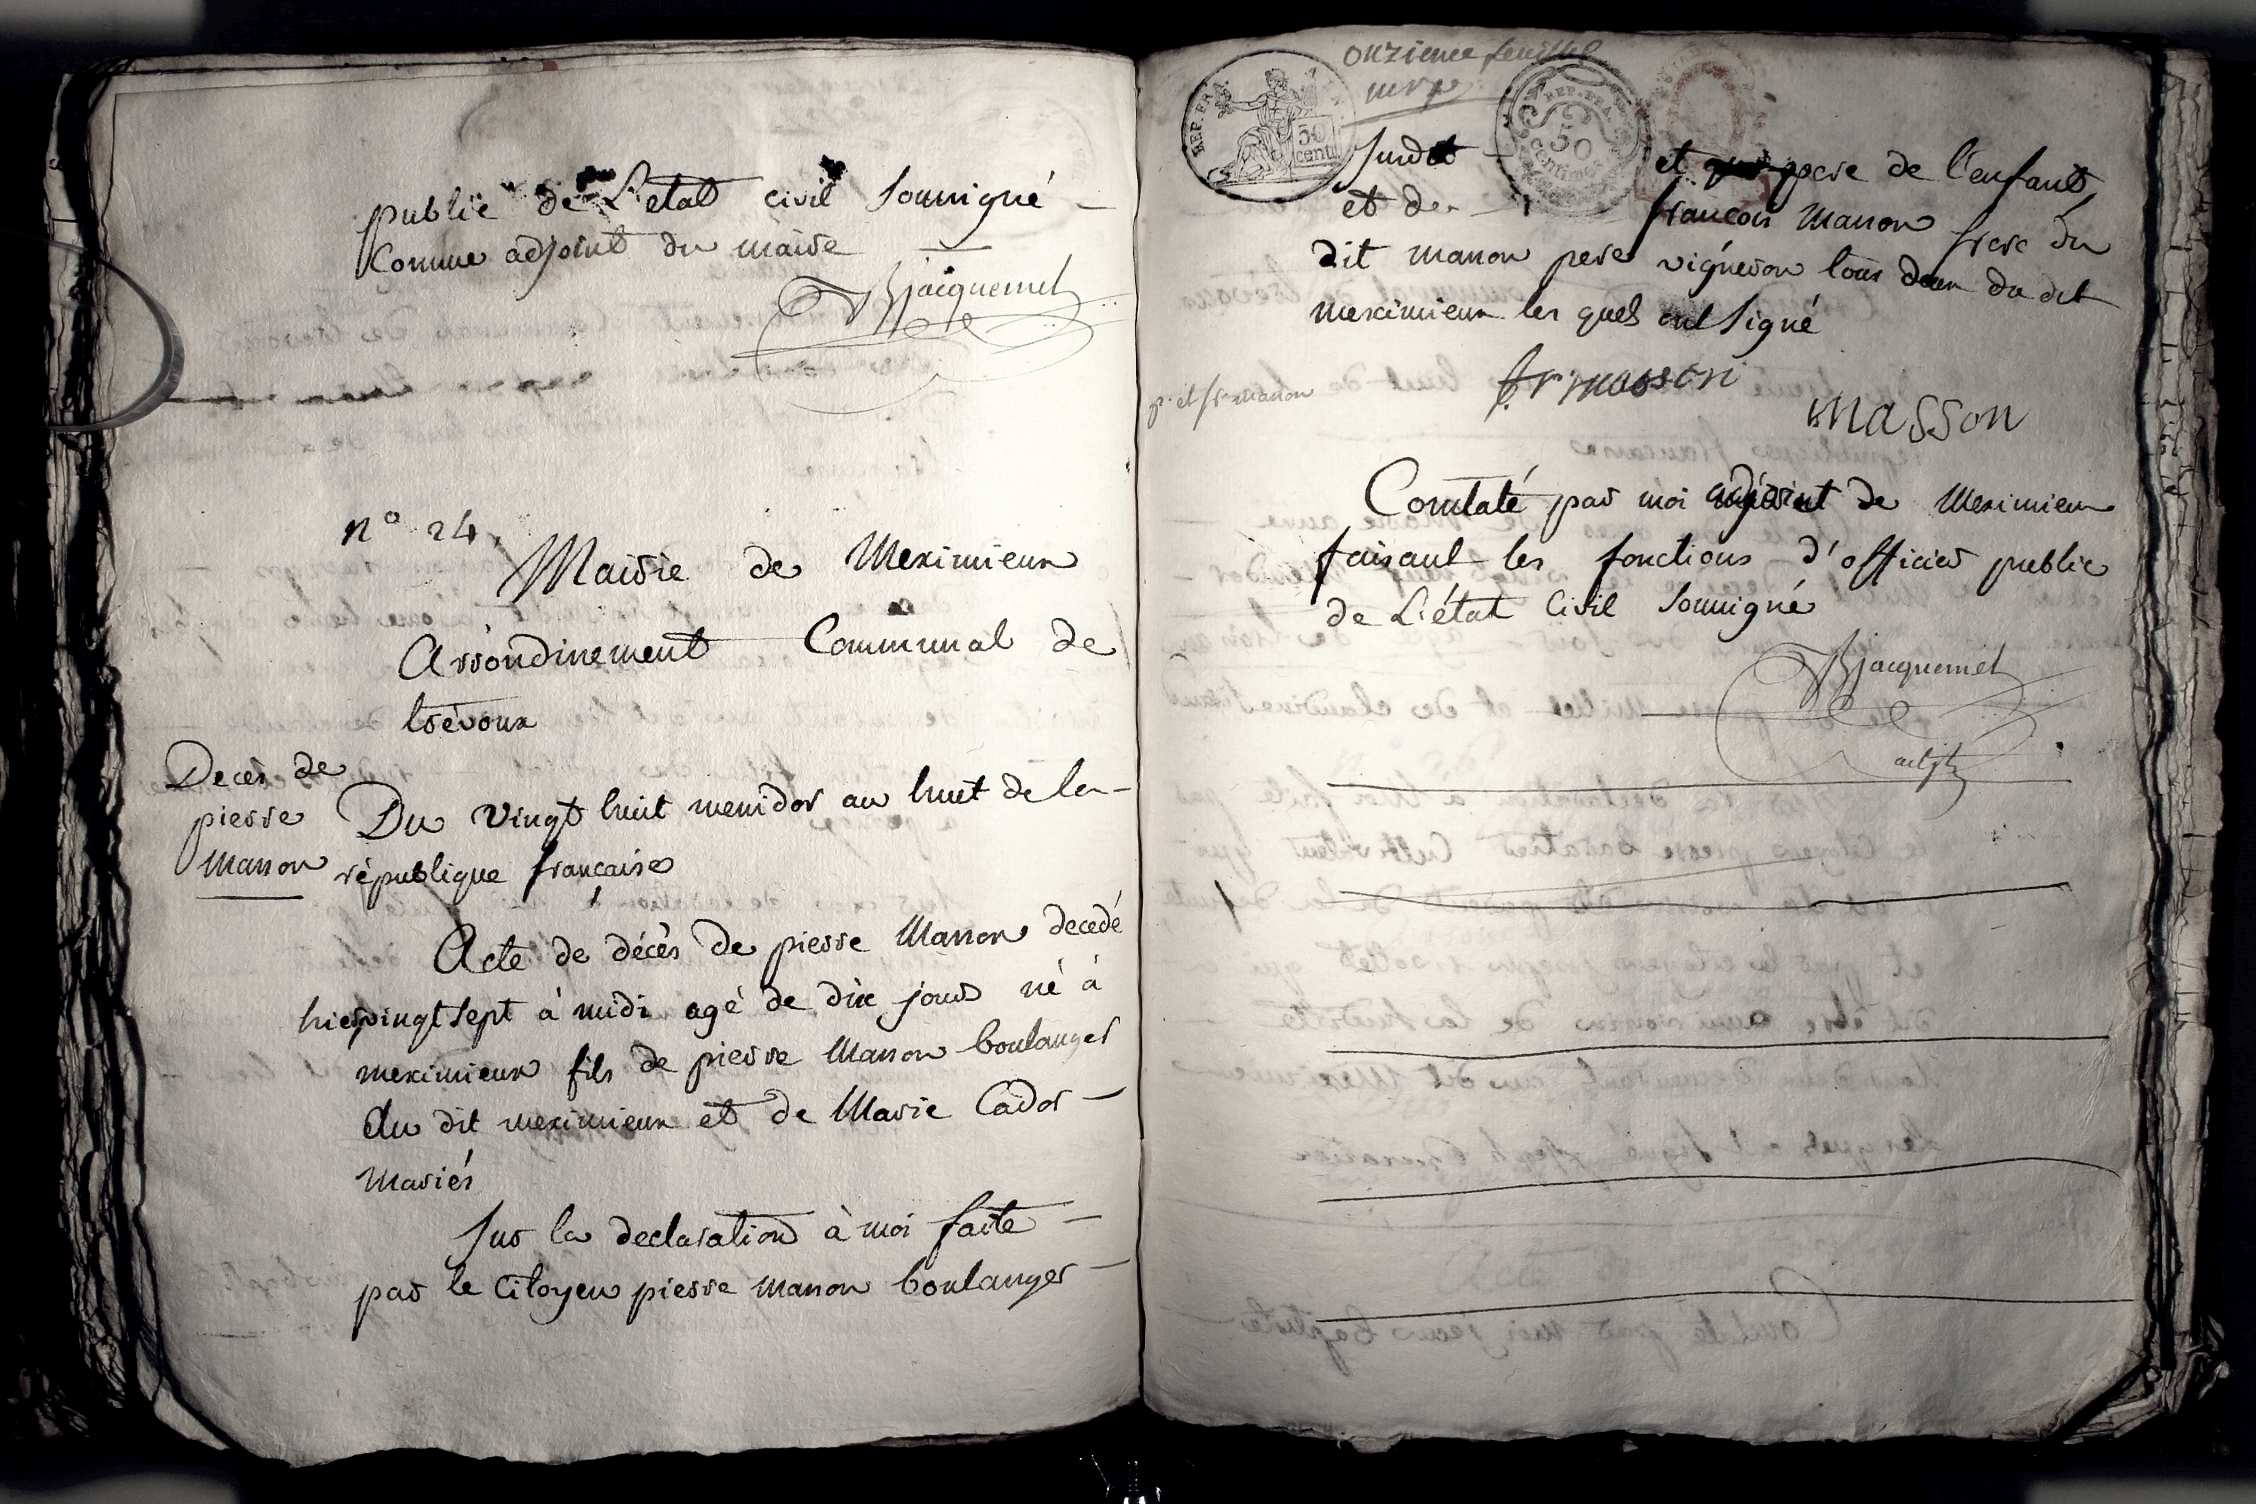 publie de L'etat civil soussigné –
Comme adjoint du maire
Bjacquemet
n° 24,
Mairie de Meximieux
Arrondinement Communal de
trévoux
Decès de
pierre
Masson
Du vingt huit messidor an huit de la –
république française
Acte de décès de pierre Masson decedé
hier vingt sept à midi agé de dix jours né à
meximieux fils de pierre Masson boulanger
du dit meximieux et de Marie Cador –
Mariés
Sur la declaration à moi faite –
par le Citoyen pierre Masson boulanger –
onzieme feuillet
REP. FRA.
50
centi
REP. FRA.
50
Centimes
susdit – et pere de l'enfant,
et de françois Masson frere du
dit masson pere vigneron tous deux du dit
meximieux les quels ont signé
p. et fr. masson
fr masson
masson
Constaté par moi adjoint de Meximieux
faisant les fonctions d'officier public
de L'état Civil soussigné
Bjacquemet
adjt